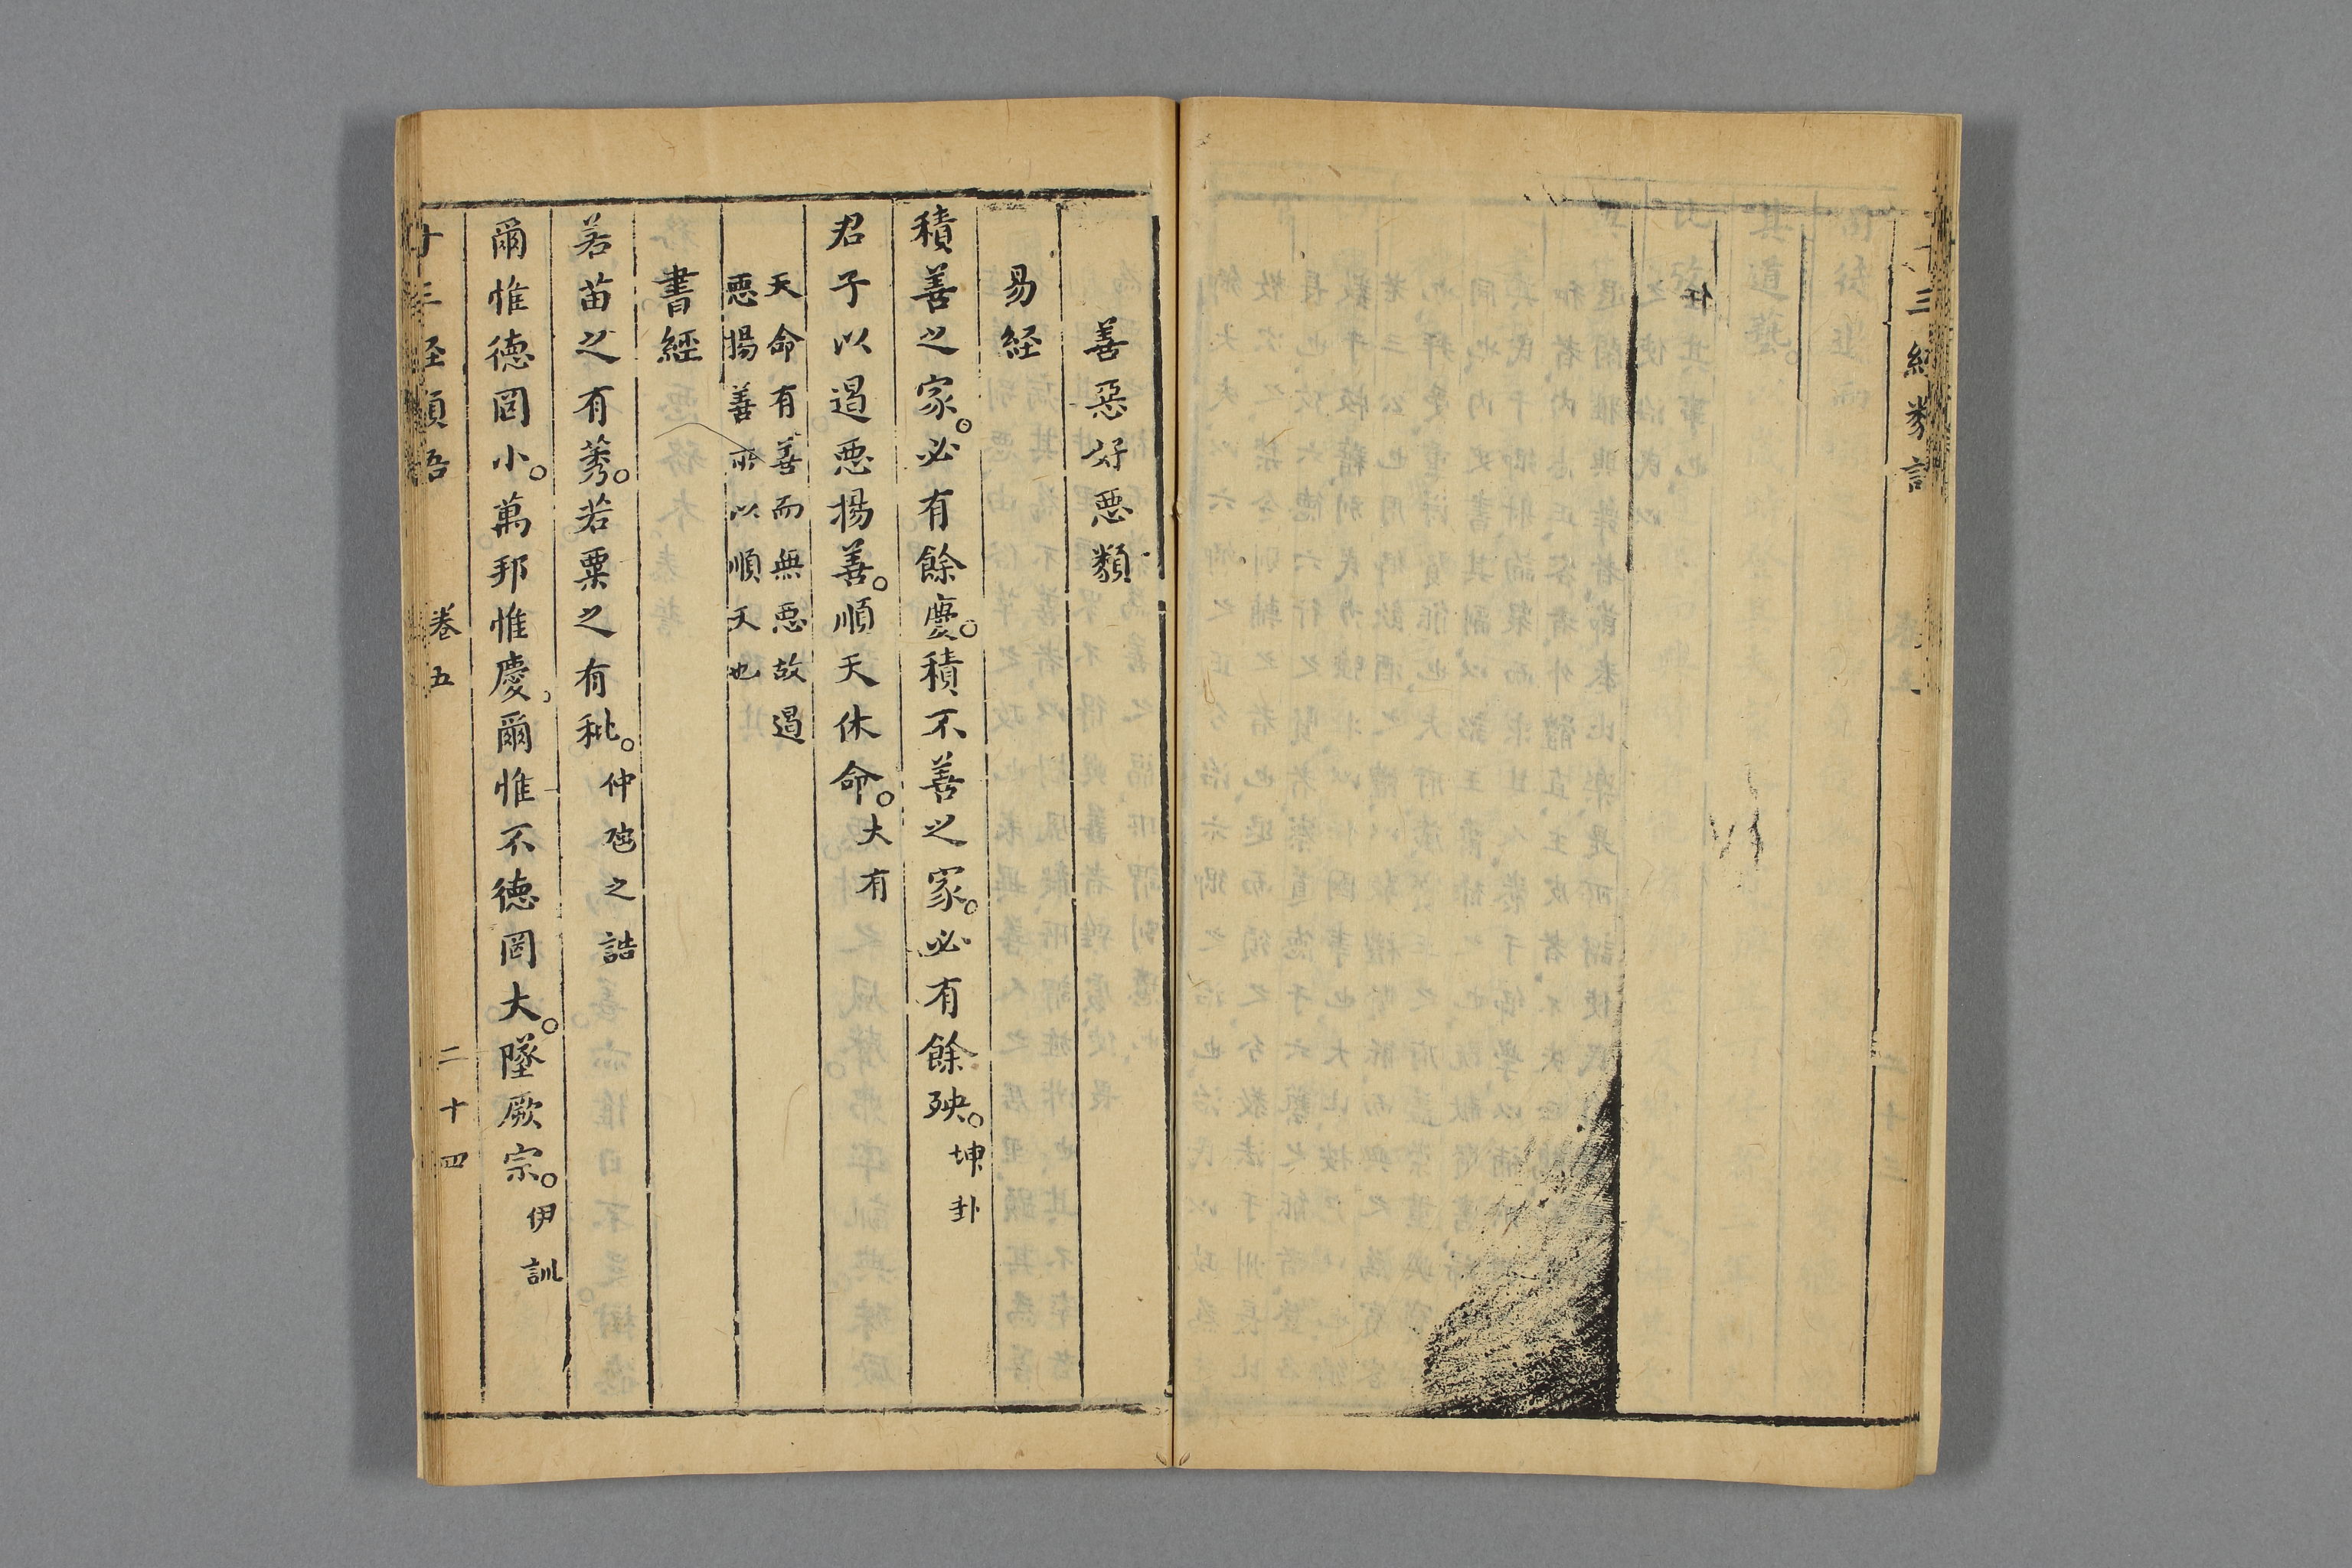 任
善惡好惡類
易経
積善之家。必有餘慶。積不善之家。必有餘殃。坤卦
君子以遏惡揚善。順天休命。大有
天命有善而無惡故遏
惡揚善所以順天也
書經
若苗之有莠。若粟之有秕。仲虺之誥
爾惟德罔小。萬邦惟慶。爾惟不德罔大。墜厥宗。伊訓
卷五
二十四